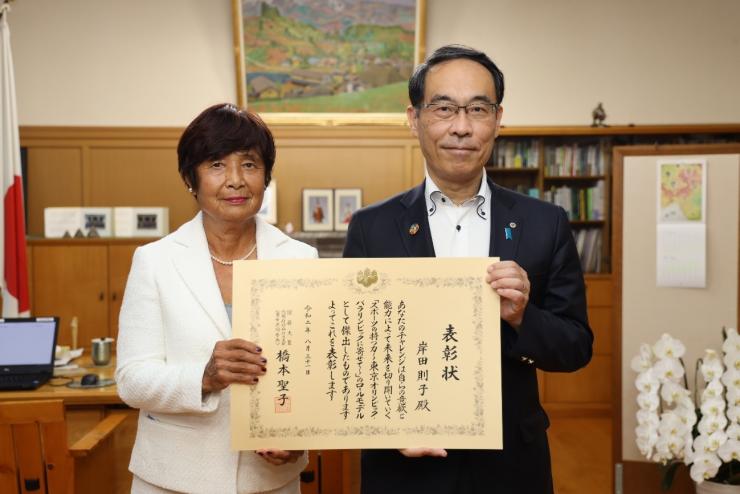 表彰状
岸田 則子 殿
あなたのチャレンジは自らの意欲と
能力によって未来を切り開いていく
「スポーツの持つ力！東京オリンピック
パラリンピックに寄せて～」のロールモデル
として傑出したものであります
よってこれを表彰します
令和二年 八月三十一日
国務大臣
橋本聖子